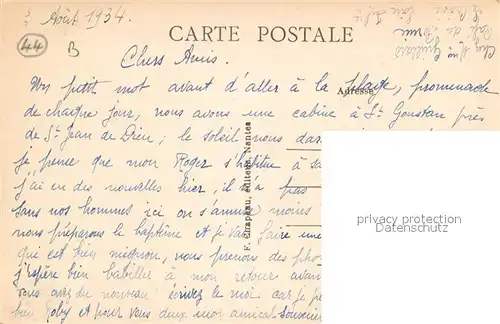 Août 1934
CARTE POSTALE
44
B
Chers Amis.
Un petit mot avant d'aller à la plage, promenade
Adresse
de chaque jour, nous avons une cabine à St Goustan près
de St Jean de Dieu; le soleil nous
je pense que mon Roger s'habitue à sa
j'ai eu des nouvelles hier, il n'a pas
Sans nos hommes ici on s'ennuie moins
nous préparons le baptême et je vais faire une
qui est bien mignon, nous prenons des pho
j'espère bien babiller à mon retour avan
vous avez du nouveau écrivez le moi car je
bien et pour vous deux mon amical souvenir
F. Chapeau, éditeur, Nantes
privacy protection
Datenschutz